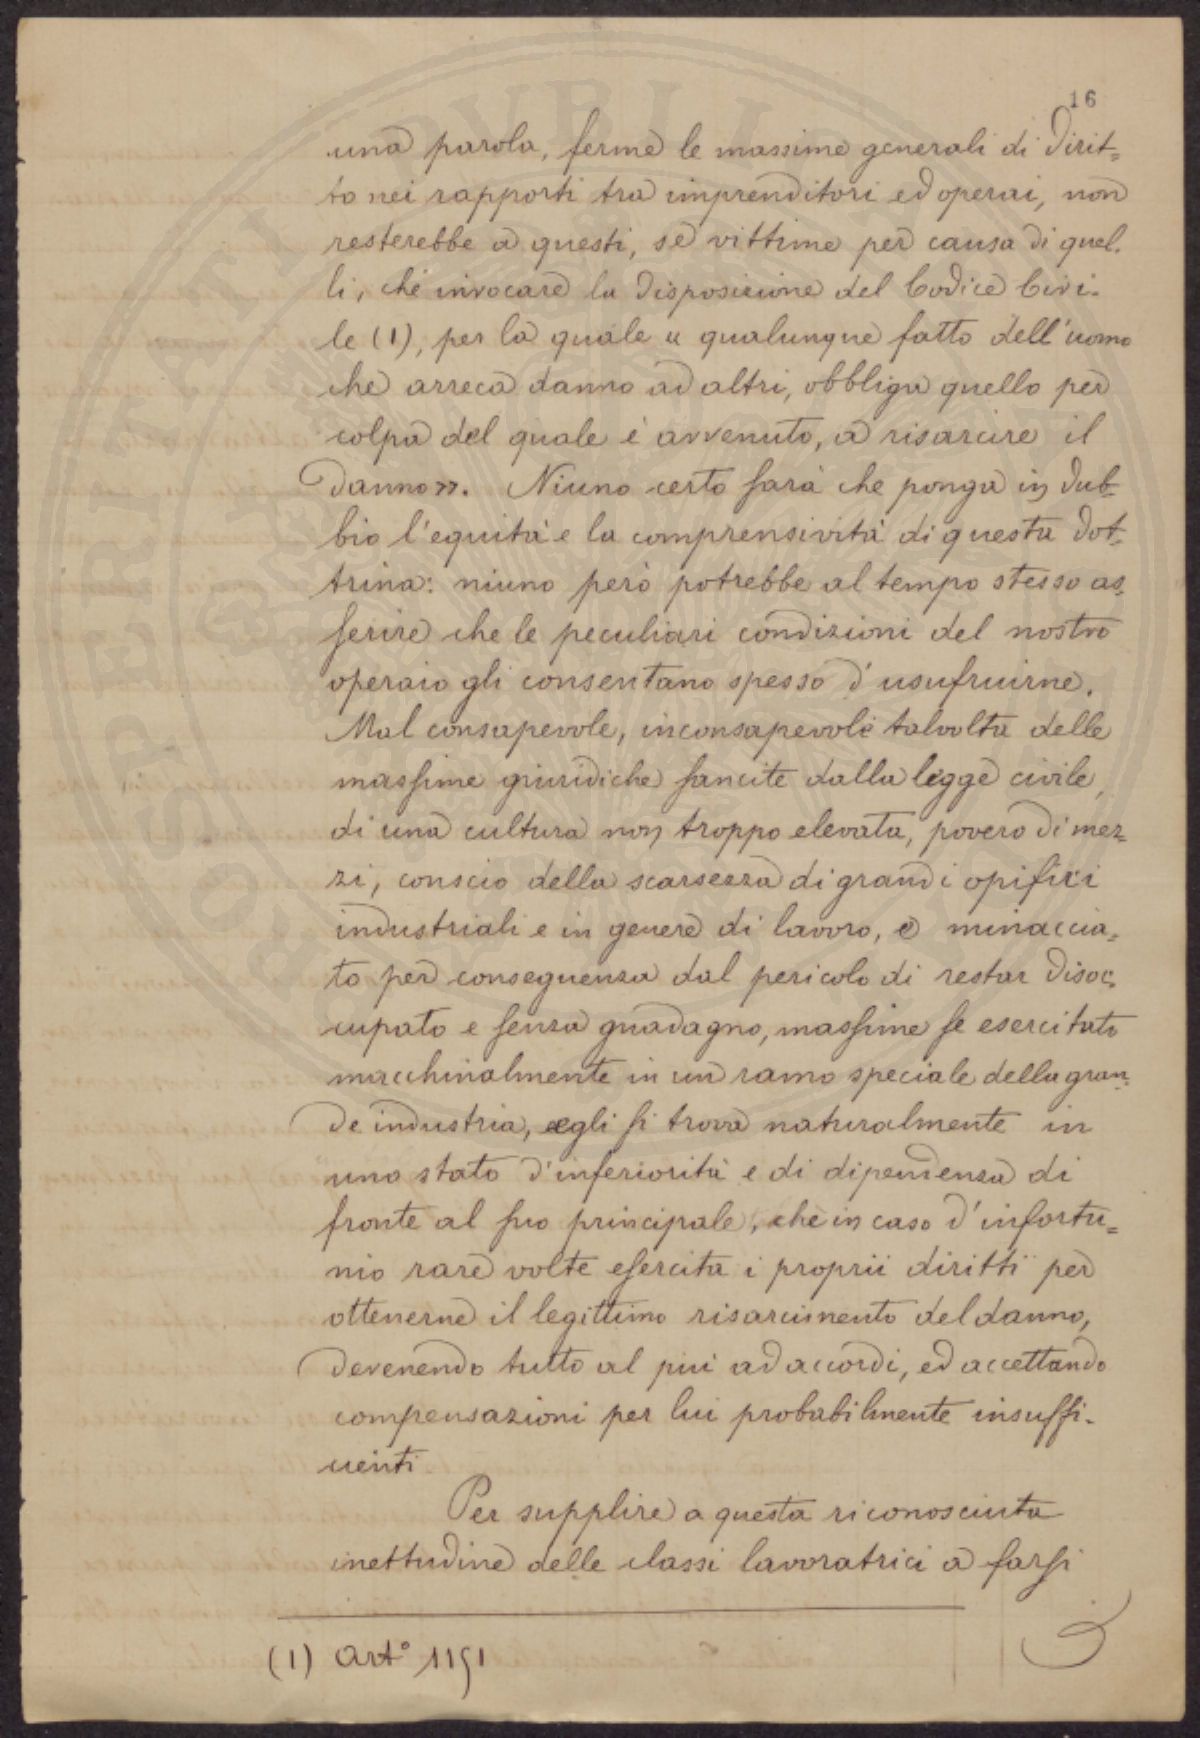 16
una parola, ferme le massime generali di dirit=
to nei rapporti tra imprenditori ed operai, non
resterebbe a questi, se vittime per causa di quel-
li, che invocare la disposizione del Codice Civi-
le (1), per la quale « qualunque fatto dell'uomo
che arreca danno ad altri, obbliga quello per
colpa del quale è avvenuto, a risarcire il
danno ». Niuno certo sarà che ponga in dub-
bio l'equità e la comprensività di questa dot-
trina: niuno però potrebbe al tempo stesso as-
serire che le peculiari condizioni del nostro
operaio gli consentano spesso d'usufruirne.
Mal consapevole, inconsapevole talvolta delle
massime giuridiche sancite dalla legge civile,
di una cultura non troppo elevata, povero di mez-
zi, conscio della scarsezza di grandi opifici
industriali e in genere di lavoro, e minaccia=
to per conseguenza dal pericolo di restar disoc-
cupato e senza guadagno, massime se esercitato
macchinalmente in un ramo speciale della gran-
de industria, egli si trova naturalmente in
uno stato d'inferiorità e di dipendenza di
fronte al suo principale, che in caso d'infortu=
nio rare volte esercita i proprii diritti per
ottenerne il legittimo risarcimento del danno,
devenendo tutto al più ad accordi, ed accettando
compensazioni per lui probabilmente insuffi-
cienti
Per supplire a questa riconosciuta
inettudine delle classi lavoratrici a farsi
(1) Art° 1151